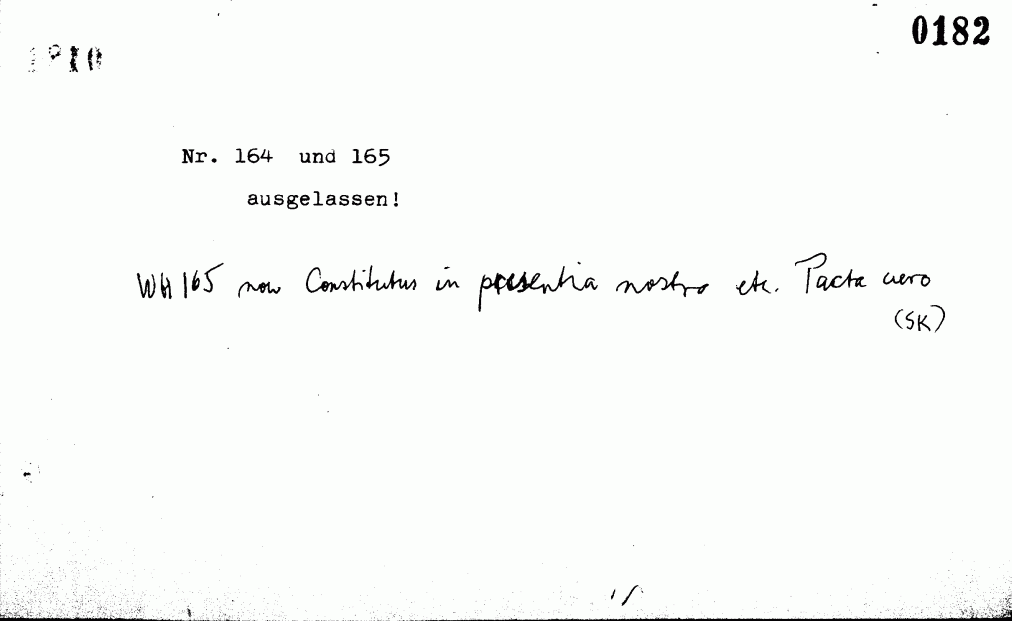 0182
Nr. 164 und 165
ausgelassen!
WH 165 now Constitutus in presentia nostra etc. Pacta vero
(SK)